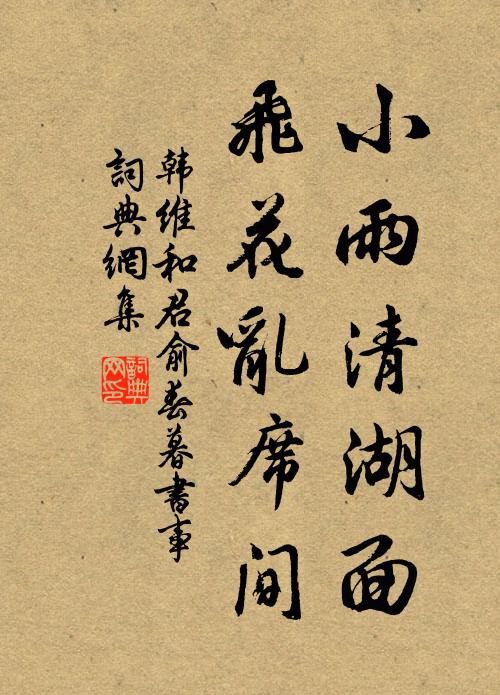 小雨清湖面
飛花亂席間
韩維和君俞春暮書事
詞典網集
詞典网印